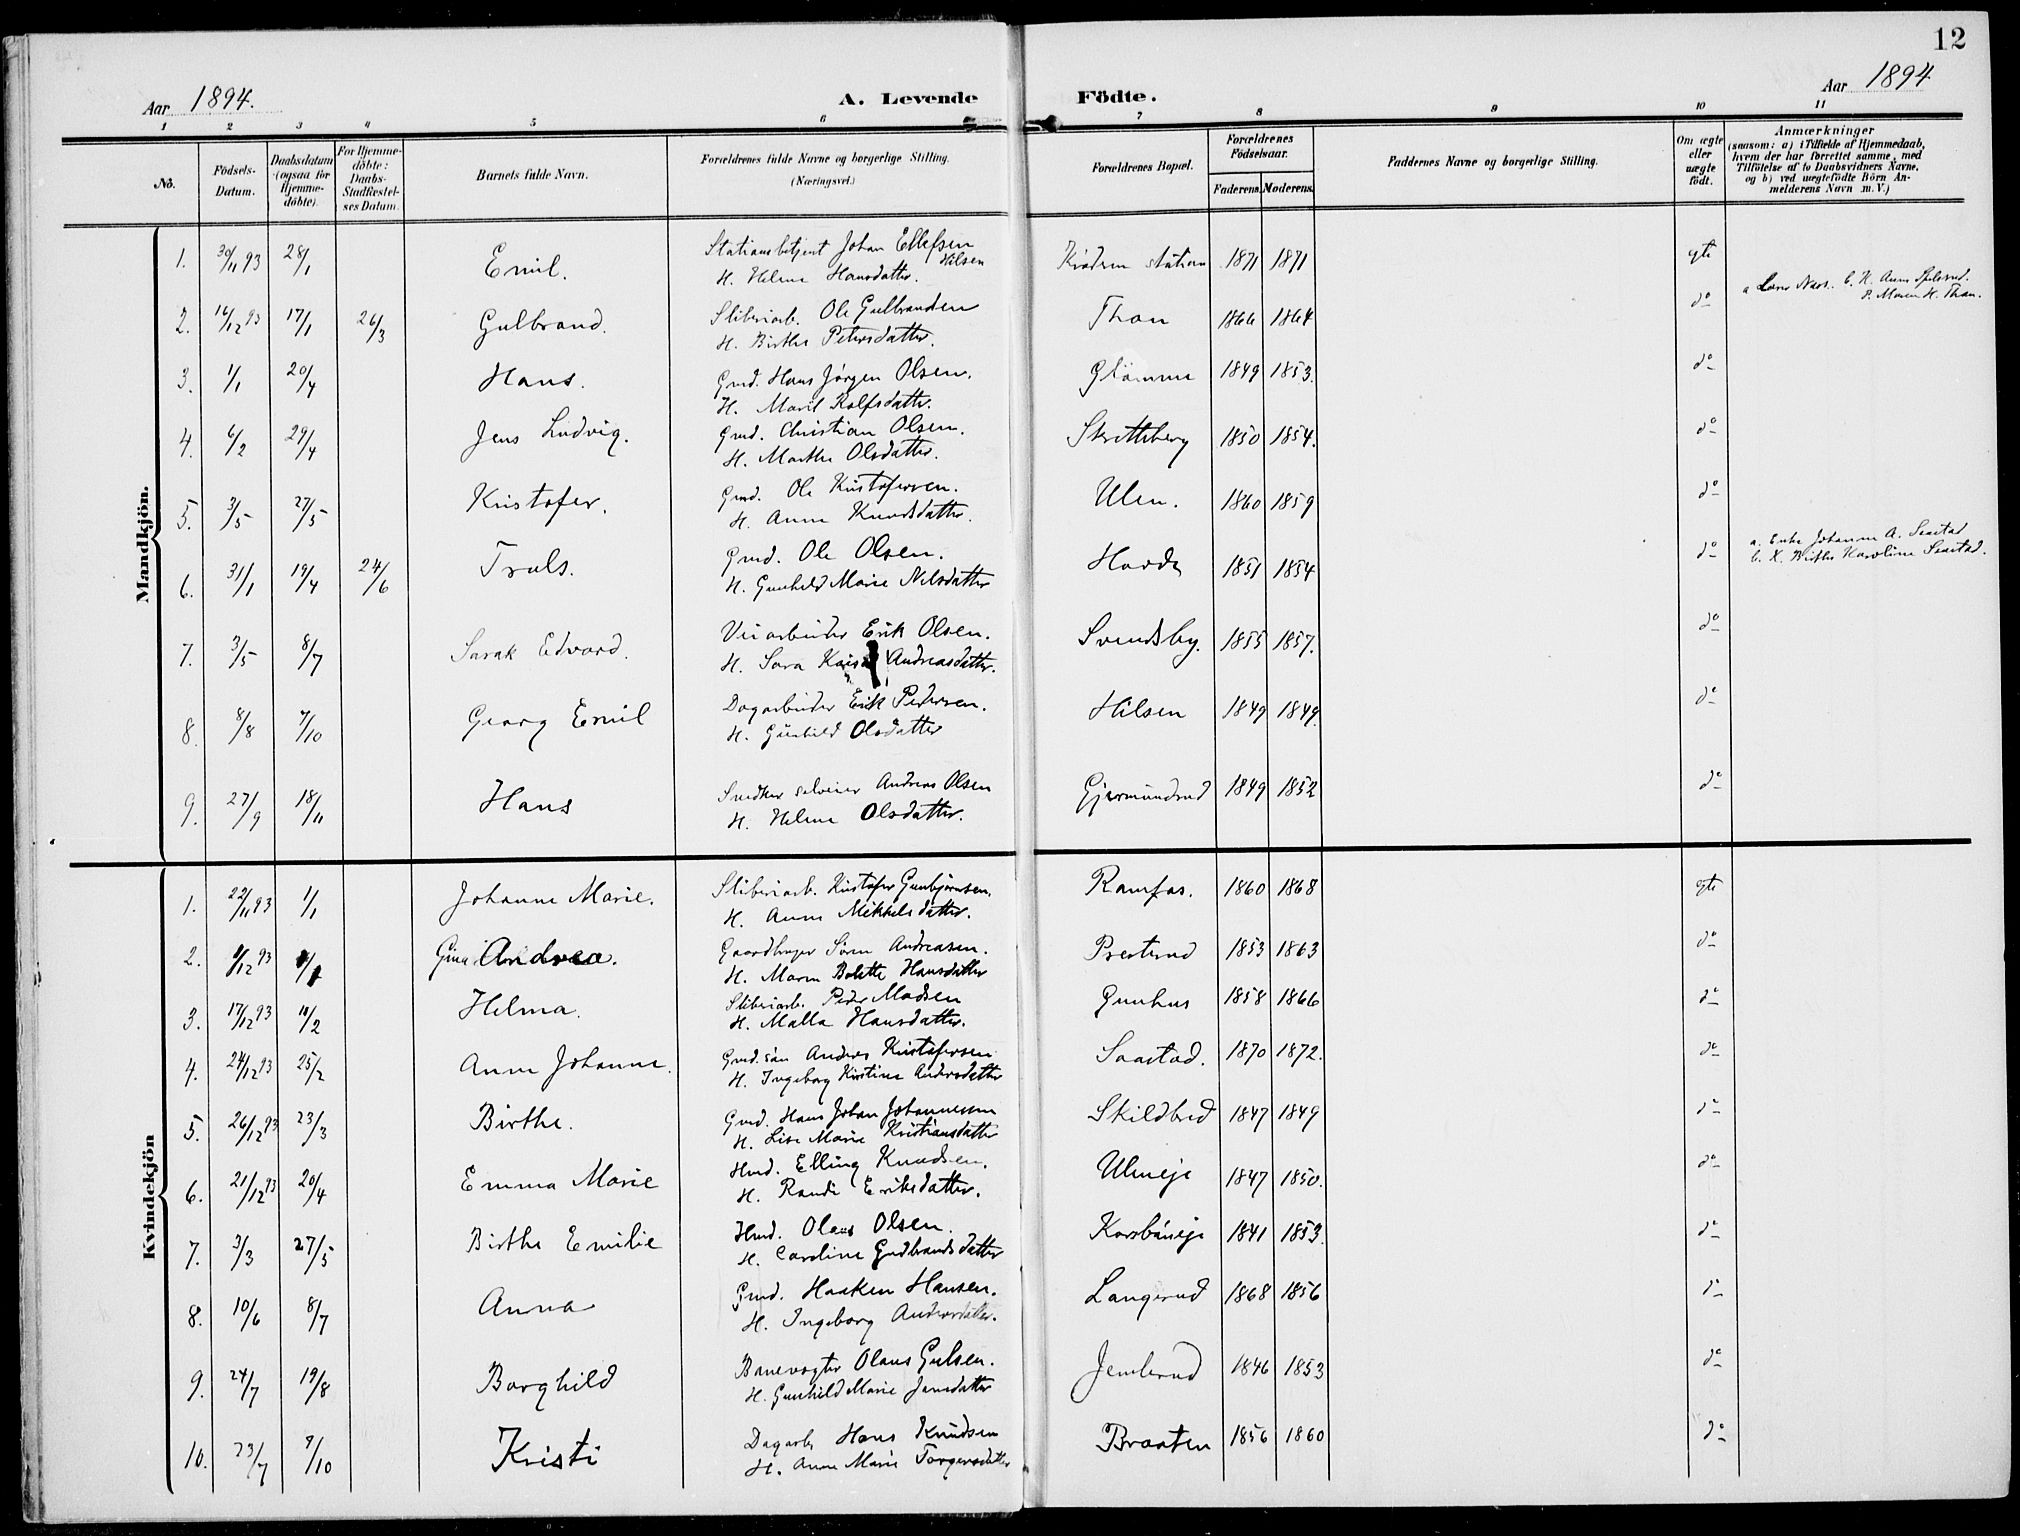 12
Aar 1894.
A. Levende Födte.
Aar 1894
1 2 3 4 5 6 7 8 9 10 11
No.
Födsels-Datum.
Daabsdatum (ogsaa for Hjemmedöbte).
For Hjemmedöbte: Daabs-Stadfestelses Datum.
Barnets fulde Navn.
Forældrenes fulde Navne og borgerlige Stilling. (Næringsvei.)
Forældrenes Bopæl.
Forældrenes Födselsaar.
Faderens. Moderens.
Faddernes Navne og borgerlige Stilling.
Om ægte eller uægte födt.
Anmærkninger (saasom: a) i Tilfælde af Hjemmedaab, hvem der har forrettet samme, med Tilföielse af to Daabsvidners Navne, og b) ved uægtefödte Börn Anmelderens Navn m. V.)
Mandkjön.
1. 30/11 93 28/1 Emil. Stationsbetjent Johan Ellefsen Hilsen Krödern station 1871 1871 gte
H. Helene Hansdatter.
2. 16/12 93 17/1 26/3 Gulbrand. Sliberiarb. Ole Gulbrandsen Thon 1866 1864 do
H. Birthe Petersdatter.
3. 1/1 20/4 Hans. Gmd. Hans Jørgen Olsen. Glömme 1849 1853. do
H. Marit Rolfsdatter.
4. 6/2 29/4 Jens Ludvig. Gmd. Christian Olsen. 1850 1854. do
H. Marthe Olsdatter.
5. 3/5 27/5 Kristofer. Gmd. Ole Kristofersen. Ulen. 1860 1859 do
H. Anne Knudsdatter.
6. 31/1 19/4 24/6 Truls. Gmd. Ole Olsen. 1851 1854 do a. Enke Johanne A. Saastad
H. Gunhild Marie Nilsdatter b. K. Birthe Karoline Saastad.
7. 3/5 8/7 Sarak Edvard. Veiarbeider Erik Olsen. Svendsby. 1855 1857. do
H. Sara Andreasdatter.
8. 8/8 7/10 Georg Emil Dagarbeider Erik Pedersen. Hilsen 1849 1849. do
H. Gunhild Olsdatter
9. 27/9 18/11 Hans Snedker selveier Andreas Olsen Gjermundrud 1849 1852 do
H. Helene Olsdatter.
Kvindekjön
1. 22/11 93 1/1 Johanne Marie. Sliberiarb. Kristofer Gunbjørnsen. Ramfos. 1860 1868 gte
H. Anne Mikkelsdatter.
2. 93 Gina Andrea. Gaardbruger Søren Andreasen. Presterud 1853 1863 do
H. Maren Bolette Hansdatter
3. 17/12 93 18/2 Helma. Sliberiarb. Peder Madsen Gunhus 1858 1866 do
H. Malla Hansdatter.
4. 24/12 93 25/2 Anne Johanne. Gmd. sön Anders Kristofersen Saastad. 1870 1872. do
H. Ingeborg Kirstine Andersdatter
5. 26/12 93 23/3 Birthe. Gmd. Hans Johan Johannesen Skildbred 1847 1849 do
H. Lise Marie Kristiansdatter
6. 21/12 93 20/4 Emma Marie Hmd. Elling Knudsen. Ulneje 1847 1850. do
H. Randi Eriksdatter.
7. 3/3 27/5 Birthe Emilie Hmd. Olaus Olsen. 1841 1853. do
H. Caroline Gudbrandsdatter
8. 10/6 8/7 Anna Gmd. Haaken Hansen. Langerud 1868 1856 do
H. Ingeborg Andersdatter.
9. 24/7 19/8 Borghild Banevogter Olaus Gulsen. 1846 1853 do
H. Gunhild Marie Jensdatter
10. 23/7 7/10 Kristi Dagarb. Hans Knudsen Braaten 1856 1860 do
H. Anne Marie Torgersdatter